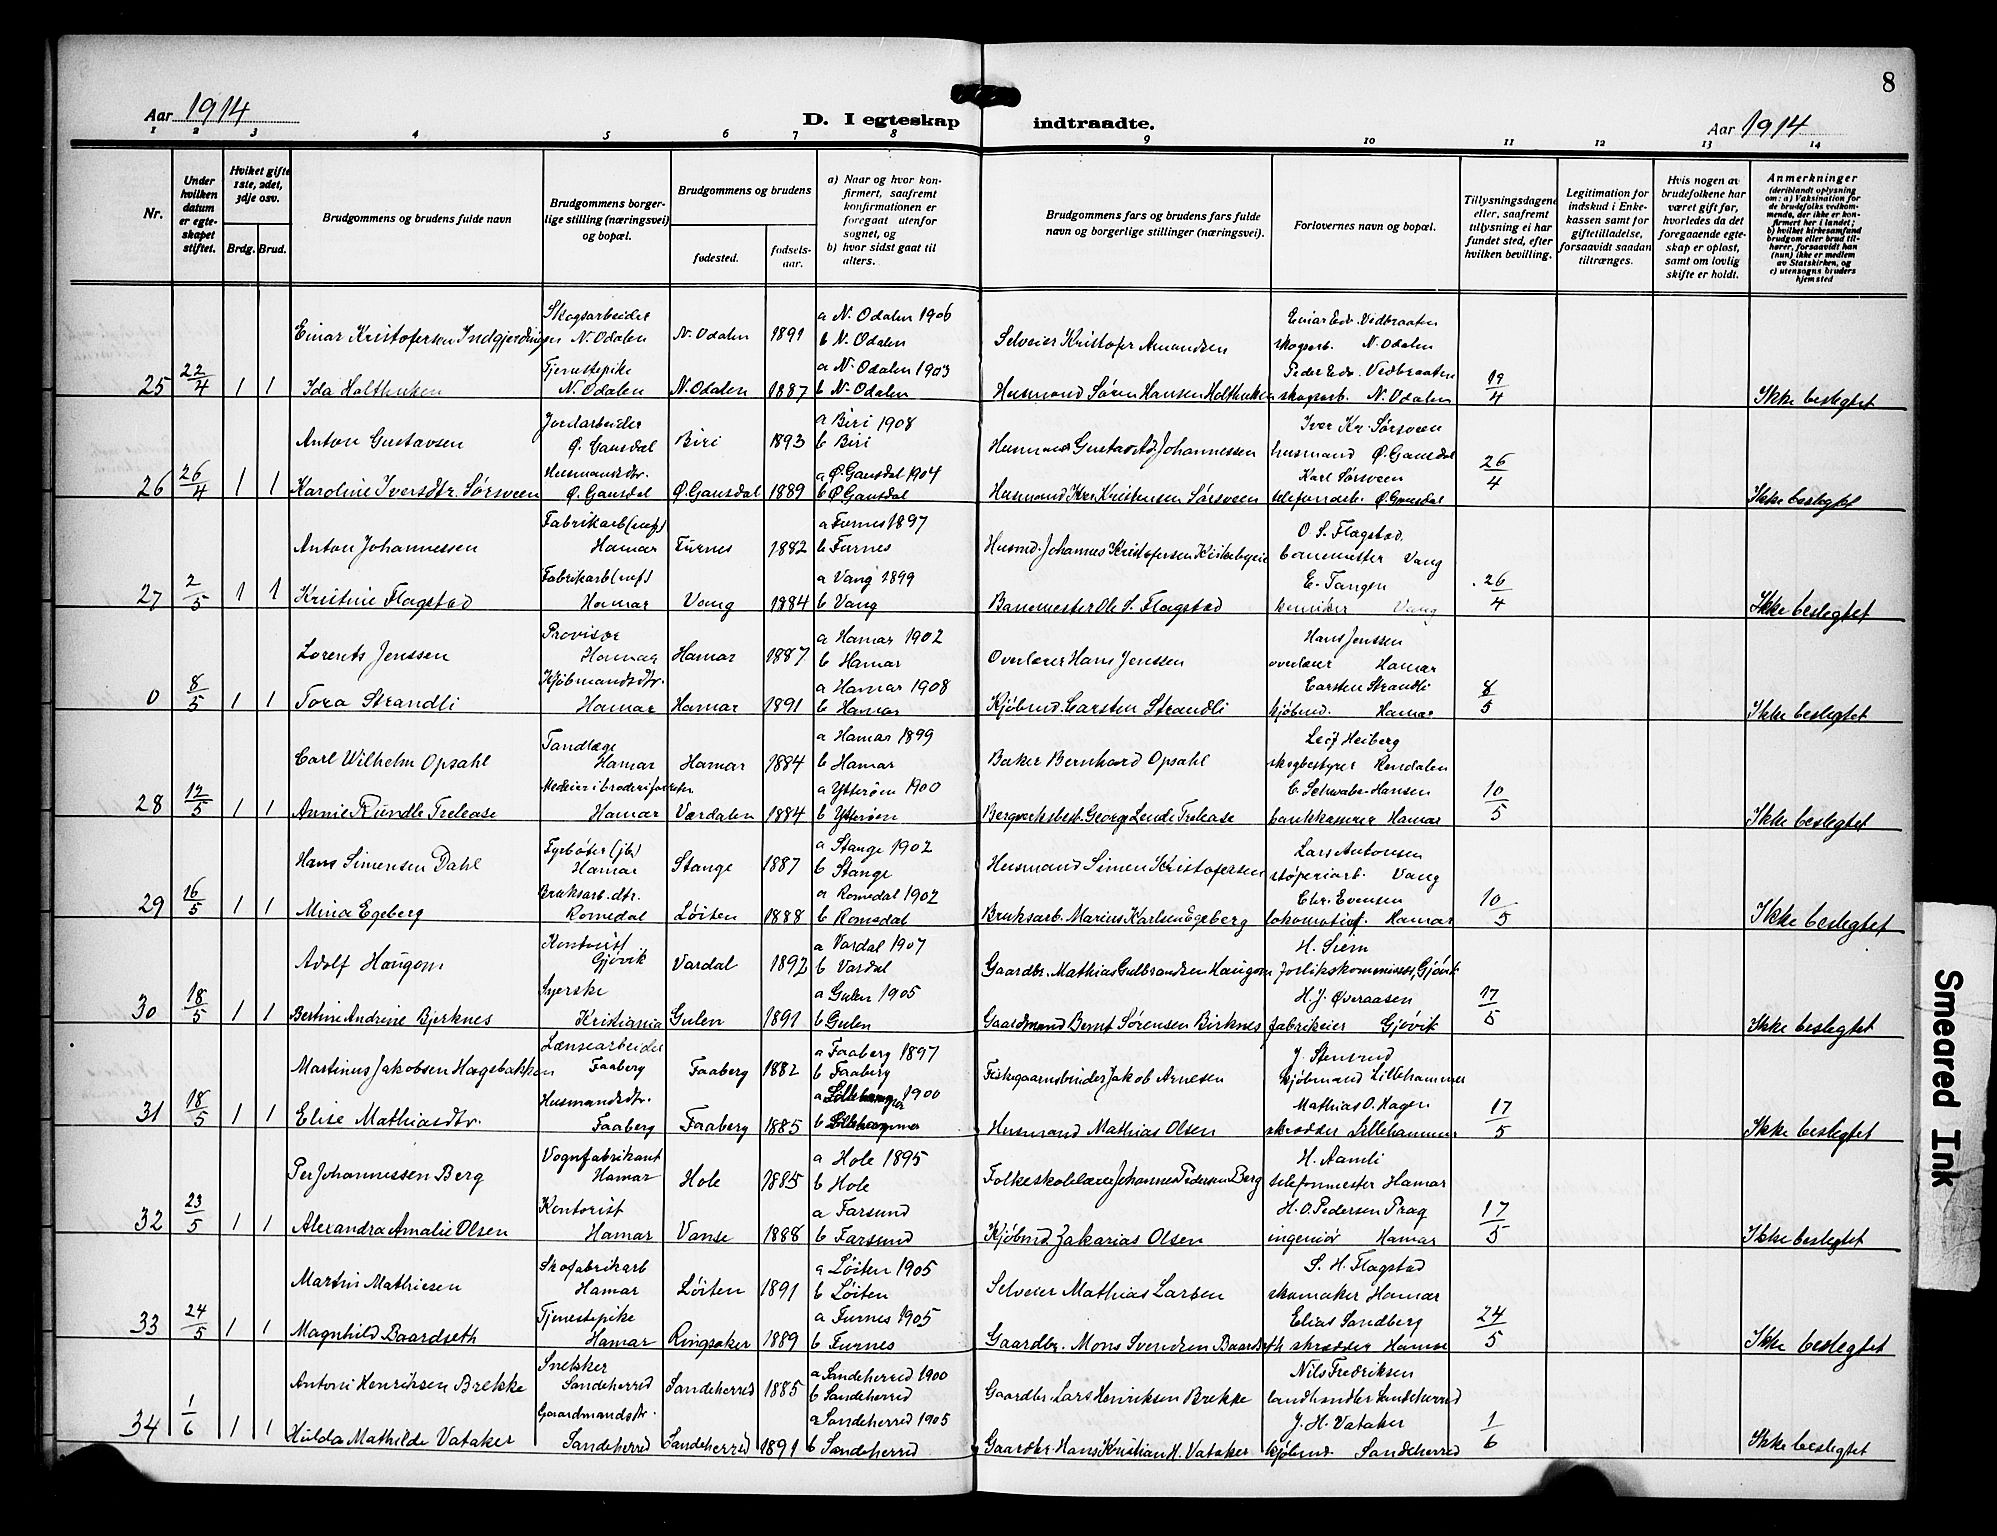 8
Aar 1914
D. I egteskap indtraadte.
Aar 1914
1 2 3 4 5 6 7 8 9 10 11 12 13 14
Nr.
Under hvilken datum er egteskapet stiftet.
Hviket gifte 1ste, 2det, 3dje osv.
Brdg. Brud.
Brudgommens og brudens fulde navn
Brudgommens borgerlige stilling (næringsvei) og bopæl.
Brudgommens og brudens
fødested.
fødselsaar.
a) Naar og hvor konfirmert, saafremt konfirmationen er foregaat utenfor sognet, og
b) hvor sidst gaat til alters.
Brudgommens fars og brudens fars fulde navn og borgerlige stillinger (næringsvei).
Forlovernes navn og bopæl.
Tillysningsdagene eller, saafremt tillysning ei har fundet sted, efter hvilken bevilling.
Legitimation for indskud i Enkekassen samt for giftetilladelse, forsaavidt saadan tiltrænges.
Hvis nogen av brudefolkene har været gift før, hvorledes da det foregaaende egteskap er opløst, samt om lovlig skifte er holdt.
Anmerkninger
(deriblandt oplysning om: a) Vaksination for de brudefolks vedkommende, der ikke er konfirmert her i landet; b) hvilket kirkesamfund brudgom eller brud tilhører, forsaavidt han (hun) ikke er medlem av Statskirken, og c) utensogns bruders hjemsted
Einar Kristofersen Indgjerdingen Skogsarbeider N. Odalen N. Odalen 1891 a N. Odalen 1906 b N. Odalen Selveier Kristofer Amundsen Einar Edv. Vedbraaten skogsarb. N. Odalen
25 22/4 1 1 Ida Holthuken Tjenestepike N. Odalen N. Odalen 1887 a N. Odalen 1903 b N. Odalen Husmand Søren Hansen Holthuken Peder Edv. Vedbraaten skogarb. N. Odalen 19/4 Ikke beslegtet
Anton Gustavsen Jordarbeider Ø. Gausdal Biri 1893 a Biri 1908 b Biri Husmand Gustav Ad. Johannessen Iver Kr. Sørsveen husmand Ø. Gausdal
26 26/4 1 1 Karoline Iversdtr. Sørsveen Husmandsdtr. Ø. Gausdal Ø. Gausdal 1889 a Ø. Gausdal 1904 b Ø. Gausdal Husmand Iver Kristensen Sørsveen Karl Sørsveen telefonarb. Ø. Gausdal 26/4 Ikke beslegtet
Anton Johannessen Fabrikarb Hamar Furnes 1882 a Furnes 1897 b Furnes Husmd. Johannes Kristofersen Kirkebyeie O. S. Flagstad banemester Vang
27 2/5 1 1 Kristine Flagstad Fabrikarb Hamar Vang 1884 a Vang 1899 b Vang Banemester Ole S. Flagstad E. Tangen Vang 26/4 Ikke beslegtet
Lorents Jenssen Provisor Hamar Hamar 1887 a Hamar 1902 b Hamar Overlærer Hans Jenssen Hans Jenssen overlærer Hamar
0 8/5 1 1 Tora Strandli Kjøbmandsdtr. Hamar Hamar 1891 a Hamar 1908 b Hamar Kjøbmd. Carsten Strandli Carsten Strandli kjøbmd. Hamar 8/5 Ikke beslegtet
Carl Wilhelm Opsahl Tandlæge Hamar Hamar 1884 a Hamar 1899 b Hamar Baker Bernhard Opsahl Leif Heiberg skogbestyrer Rendalen
28 12/5 1 1 Annie Rundle Trelease Medeier i broderiforretn Hamar Værdalen 1884 a Ytterøen 1900 b Ytterøen Bergverksbest. Georg Lende Trelease C. Schwabe-Hansen bankkasserer Hamar 10/5 Ikke beslegtet
Hans Simensen Dahl Fyrbøter (jb) Hamar Stange 1887 a Stange 1902 b Stange Husmand Simen Kristofersen Lars Antonsen støperiarb. Vang
29 16/5 1 1 Mina Egeberg Bruksarb. dtr. Romedal Løiten 1888 a Romedal 1902 b Romedal Bruksarb. Marius Karlsen Egeberg Chr. Evensen lokomotivf. Hamar 10/5 Ikke beslegtet
Adolf Haugom Kontorist Gjøvik Vardal 1892 a Vardal 1907 b Vardal Gaardbr. Mathias Gulbrandsen Haugom H. Siem forlikskommissær, Gjøvik
30 18/5 1 1 Bertine Andrine Bjerknes Syerske Kristiania Gulen 1891 a Gulen 1905 b Gulen Gaardmand Bernt Sørensen Birknes H. J. Øveraasen fabrikeier Gjøvik 17/5 Ikke beslegtet
Martinus Jakobsen Hagebakken Lænsearbeider Faaberg Faaberg 1882 a Faaberg 1897 b Faaberg Fiskegarnsbinder Jakob Arnesen J. Stensrud kjøbmand Lillehammer
31 18/5 1 1 Elise Mathiasdtr. Husmandsdtr. Faaberg Faaberg 1885 a Lillehammer 1900 b Lillehammer Husmand Mathias Olsen Mathias O. Hagen skrædder Lillehammer 17/5 Ikke beslegtet
Per Johannessen Berg Vognfabrikant Hamar Hole 1885 a Hole 1895 b Hole Folkeskolelærer Johannes Pedersen Berg H. Aamli telefonmester Hamar
32 23/5 1 1 Alexandra Amalie Olsen Kontorist Hamar Vanse 1888 a Farsund b Farsund Kjøbmd Zakarias Olsen H. O. Pedersen Prag ingeniør Hamar 17/5 Ikke beslegtet
Martin Mathiesen Skofabrikarb Hamar Løiten 1891 a Løiten 1905 b Løiten Selveier Mathias Larsen S. H. Flagstad skomaker Hamar
33 24/5 1 1 Magnhild Baardseth Tjenestepike Hamar Ringsaker 1889 a Furnes 1905 b Furnes Gaardbr. Mons Svendsen Baardseth Elias Sandberg skrædder Hamar 24/5 Ikke beslegtet
Antoni Henriksen Brekke Snekker Sandeherred Sandeherred 1885 a Sandeherred 1900 b Sandeherred Gaardbr. Lars Henriksen Brekke Nils Fredriksen landhandler Sandeherred
34 1/6 1 1 Hulda Mathilde Vataker Gaardmandsdtr. Sandeherred Sandeherred 1891 a Sandeherred 1905 b Sandeherred Gaardbr. Hans Kristian H. Vataker J. H. Vataker kjøbmd. Sandeherred 1/6 Ikke beslegtet
Smeared Ink